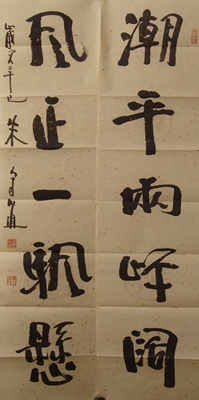 潮平兩岸闊
風正一颿懸
歲辛巳 朱